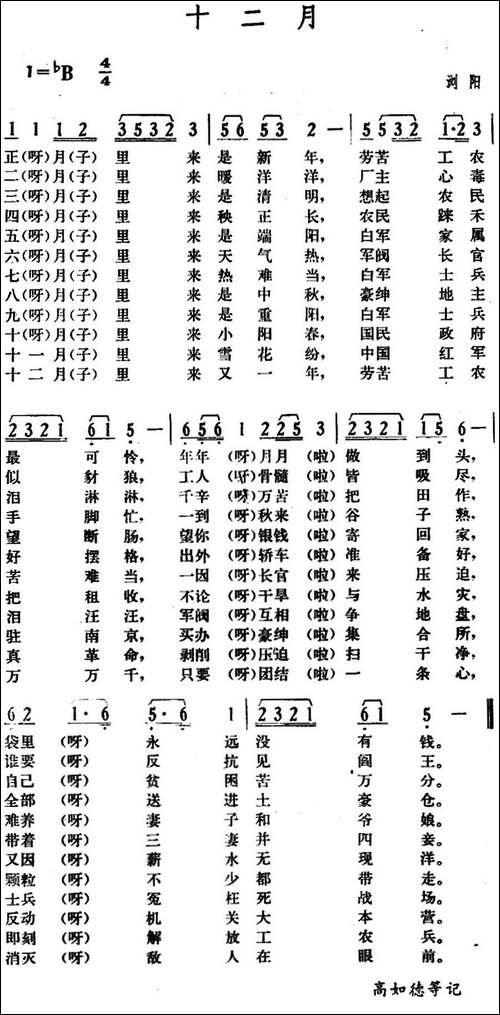 十二月
1=♭B 4/4
浏阳
1 1 1 2 3532 3 | 56 53 2 — | 5532 1·2 3
正(呀)月(子)里来是新年，劳苦工农
二(呀)月(子)里来暖洋洋，厂主心毒
三(呀)月(子)里来是清明，想起农民
四(呀)月(子)里来秧正长，农民踩禾
五(呀)月(子)里来是端阳，白军家属
六(呀)月(子)里来天气热，军阀长官
七(呀)月(子)里来热难当，白军士兵
八(呀)月(子)里来是中秋，豪绅地主
九(呀)月(子)里来是重阳，白军士兵
十(呀)月(子)里来小阳春，国民政府
十一月(子)里来雪花纷，中国红军
十二月(子)里来又一年，劳苦工农
2321 61 5 — | 656 1 225 3 | 2321 15 6 —
最可怜，年年(呀)月月(啦)做到头，
似豺狼，工人(呀)骨髓(啦)皆吸尽，
泪淋淋，千辛(呀)万苦(啦)把田作，
手脚忙，一到(呀)秋来(啦)谷子熟，
望断肠，望你(呀)银钱(啦)寄回家，
好摆格，出外(呀)轿车(啦)准备好，
苦难当，一因(呀)长官(啦)来压迫，
把租收，不论(呀)干旱(啦)与水灾，
泪汪汪，军阀(呀)互相(啦)争地盘，
驻南京，买办(呀)豪绅(啦)集合所，
真革命，剥削(呀)压迫(啦)扫干净，
万万千，只要(呀)团结(啦)一条心，
62 1·6 5·6 1 | 2321 61 5 — ‖
袋里(呀)永远没有钱。
谁要(呀)反抗见阎王。
自己(呀)贫困苦万分。
全部(呀)送进土豪仓。
难养(呀)妻子和爷娘。
带着(呀)三妻并四妾。
又因(呀)薪水无现洋。
颗粒(呀)不少都带走。
士兵(呀)冤枉死战场。
反动(呀)机关大本营。
即刻(呀)解放工农兵。
消灭(呀)敌人在眼前。
高如德等记